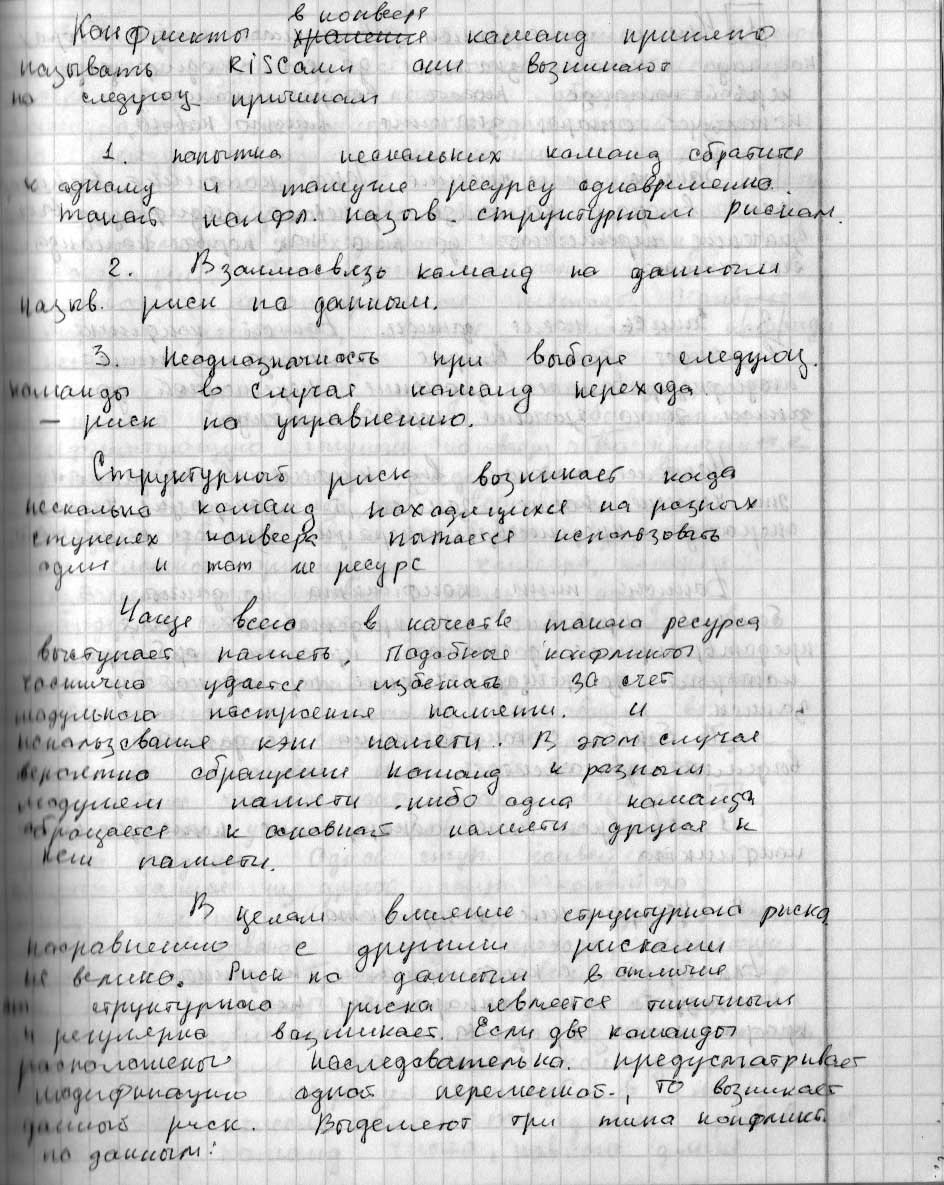 в конвеере
Конфликты хранения команд принято
называть RISCами они возникают
по следующ. причинам
1. попытка нескольких команд обратится
к одному и томуже ресурсу одновременно.
такой конфл. назыв. структурным риском.
2. Взаимосвязь команд по данным
назыв. риск по данным.
3. Неоднозначность при выборе следующ.
команды во случае команд перехода
– риск по управлению.
Структурный риск возникает когда
несколько команд находящихся на разных
ступенях конвеера пытается использовать
один и тот же ресурс
Чаще всего в качестве такого ресурса
выступает память, подобные конфликты
частично удается избежать за счет
модульного построения памяти. и
использования кэш памяти. В этом случае
вероятно обращение команд к разным
модулям памяти. либо одна команда
обращается к основной памяти другая к
кеш памяти.
В целом влияние структурного риска
посравнению с другими рисками
не велико. Риск по данным в отличие
от структурного риска является типичным
и регулярно возникает. Если две команды
расположены последовательно. предусматривает
модификацию одной переменной, то возникает
данный риск. Выделяют три типа конфликт.
по данным: